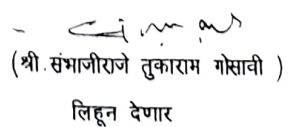 (श्री. संभाजीराजे तुकाराम गोसावी )
लिहून देणार